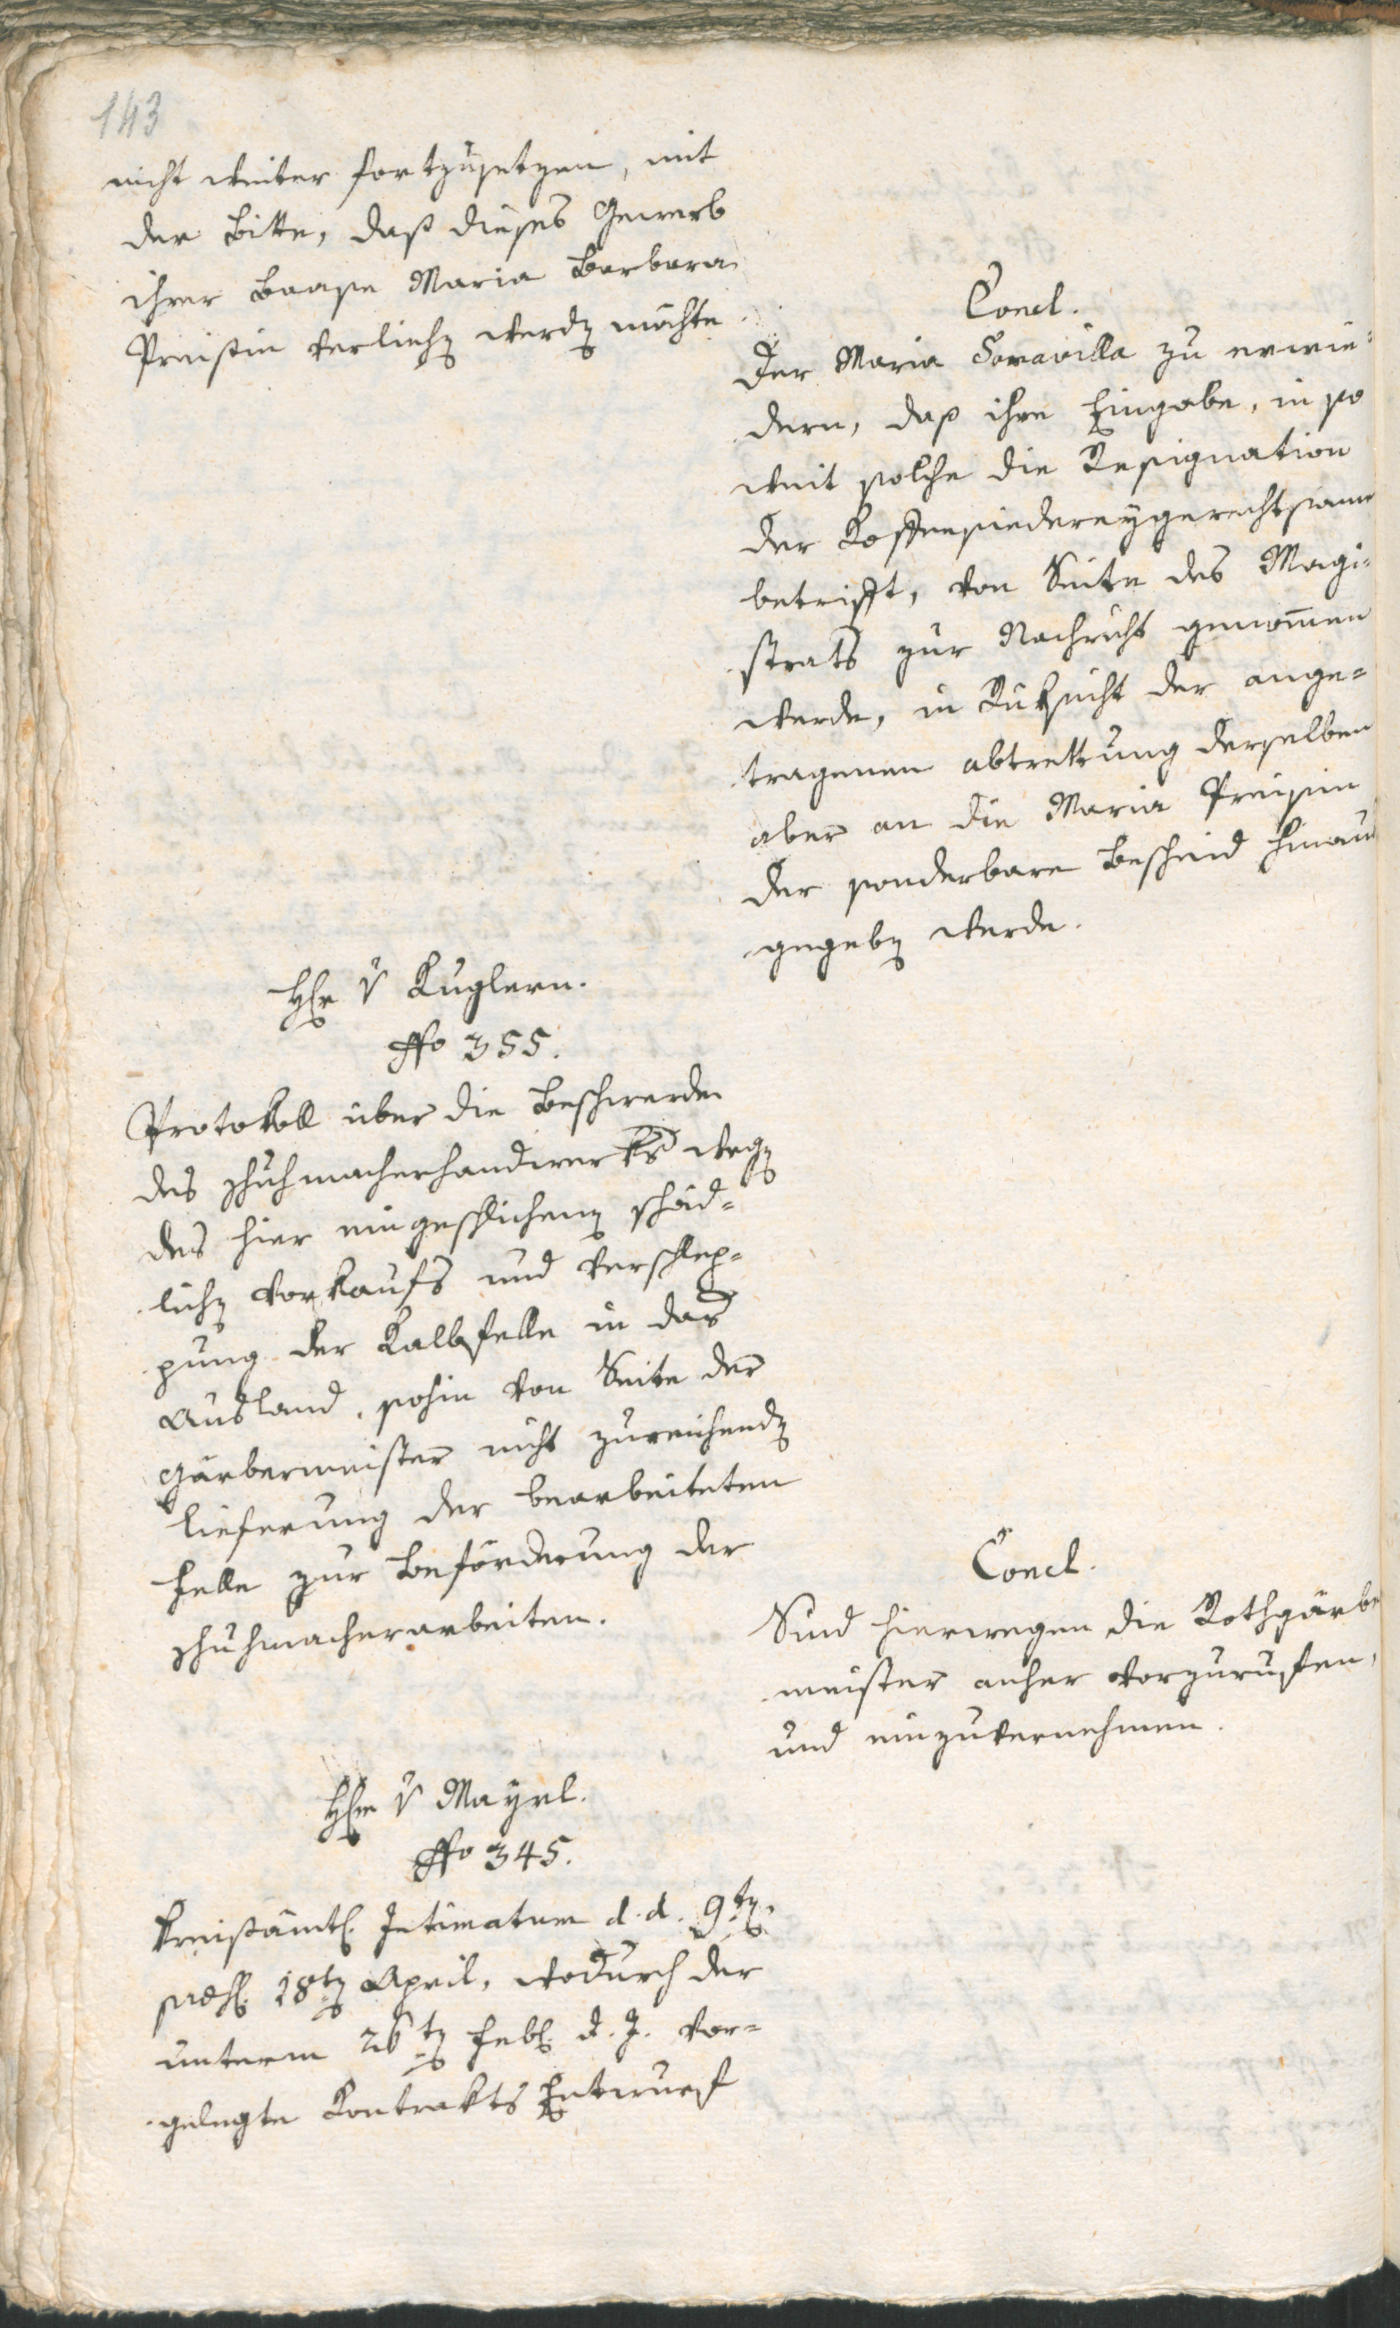 143
nicht weiter fortzusetzen, mit
der Bitte, daß dieses Gewerb
ihrer Baase Maria Barbara
Preisin verliehen werden möchte.
Concl.
Der Maria Soravilla zu erwie=
dern, daß ihre Eingabe, in so
weit solche die Resignation
der Koffeesiedereygerechtsame
betrifft, von Seite des Magi=
strats zur Nachricht genom̄en
werde, in Rücksicht der ange=
tragenen abtrettung derselben
aber an die Maria Preisin
der sonderbare Bescheid hinaus
gegeben werde.
Hr v Kuglern.
No 355.
Protokoll über die Beschwerde
des Schuhmacherhandwerks wegen
des hier eingeschlichenen schäd=
lichen Vorkaufs und Verschlep=
pung der Kalbsfelle in das
Ausland, sohin von Seite der
Gärbermeister nicht zureichenden
Lieferung der bearbeiteten
Felle zur Beförderung der
Schuhmacherarbeiten.
Concl.
Sind hierwegen die Rothgärber
meister anher vorzuruffen,
und einzuvernehmen.
Hr v Mayrl.
No 345.
Kreisämtl. Intimatum d. d. 9ten
praes. 18ten April, wodurch der
unterm 26ten Feb. d. J. vor=
gelegte Kontrakts Entwurf